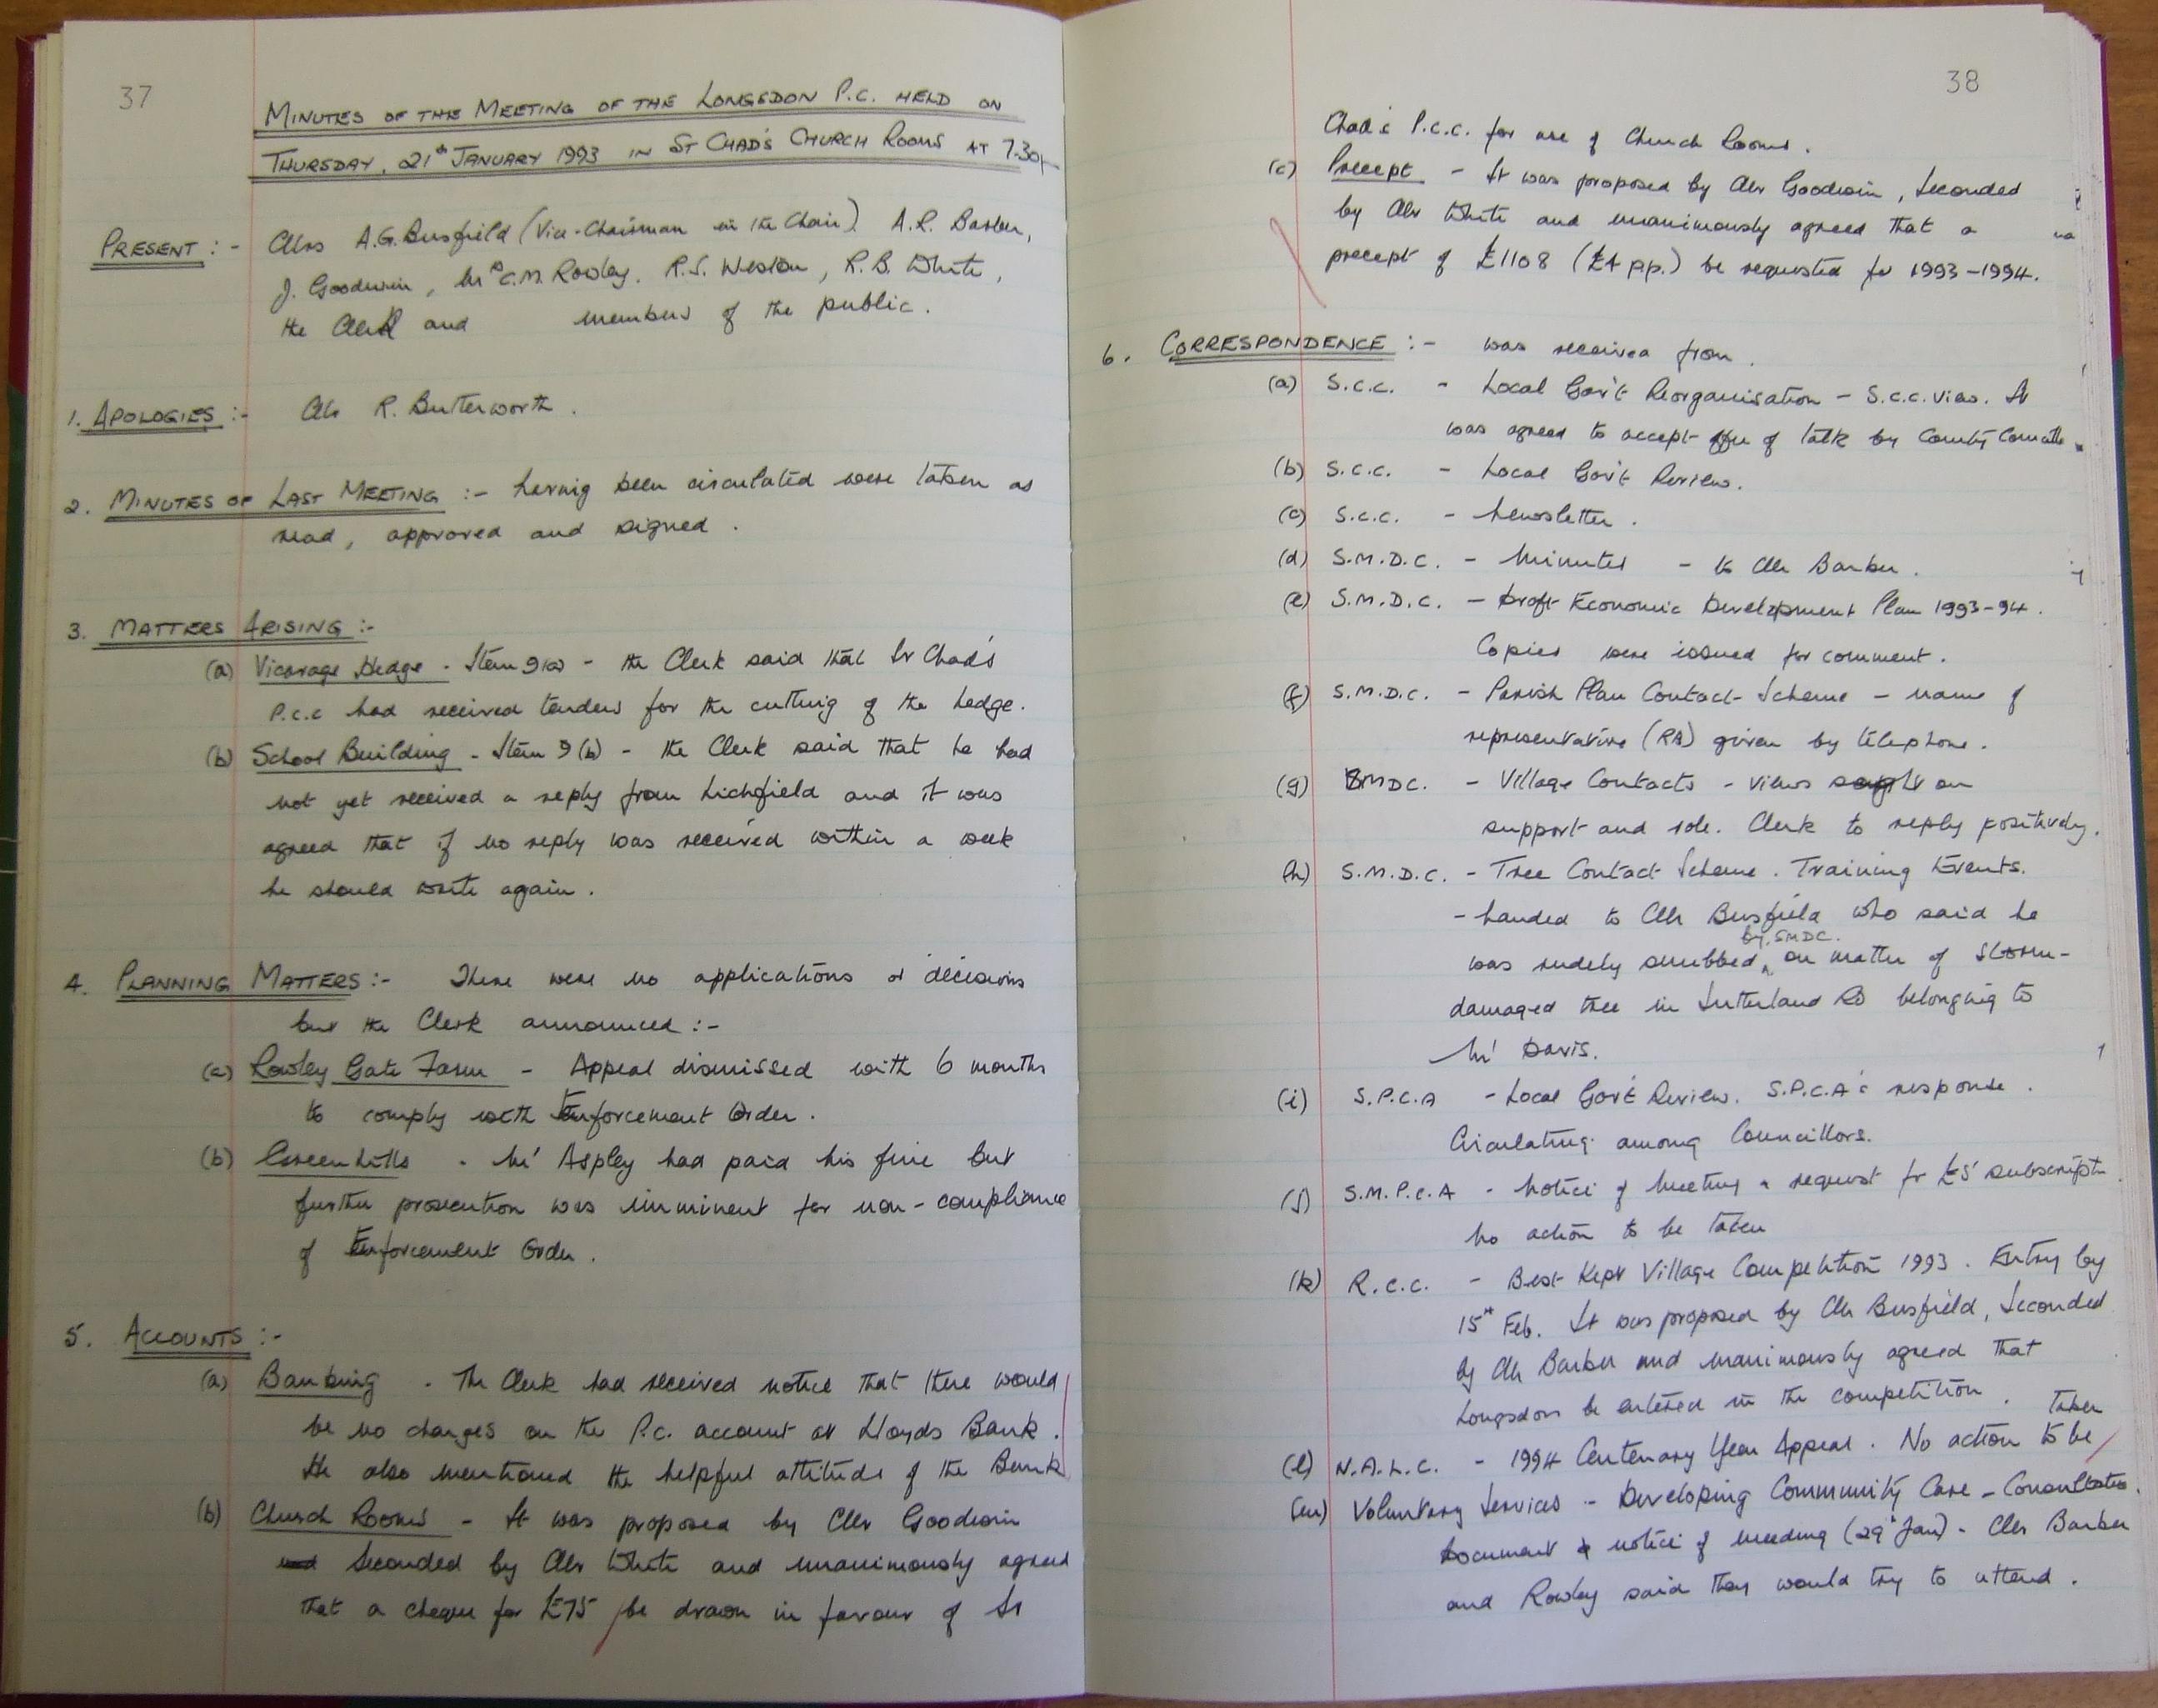 37
MINUTES OF THE MEETING OF THE LONGSDON P.C. HELD ON
THURSDAY, 21st JANUARY 1993 IN ST CHAD'S CHURCH ROOMS AT 7.30p
PRESENT :- Cllrs A.G. Busfield (Vice-Chairman in the Chair) A.R. Barber,
J. Goodwin, Mrs C.M. Rowley, R.S. Weston, R.B. White,
the Clerk and members of the public.
1. APOLOGIES :- Cllr R. Butterworth.
2. MINUTES OF LAST MEETING :- having been circulated were taken as
read, approved and signed.
3. MATTERS ARISING :-
(a) Vicarage Hedge - Item 9(a) - the Clerk said that St Chad's
P.C.C had received tenders for the cutting of the hedge.
(b) School Building - Item 9(b) - the Clerk said that he had
not yet received a reply from Lichfield and it was
agreed that if no reply was received within a week
he should write again.
4. PLANNING MATTERS :- There were no applications or decisions
but the Clerk announced :-
(a) Rowley Gate Farm - Appeal dismissed with 6 months
to comply with Enforcement Order.
(b) Greenhills - Mr Aspley had paid his fine but
further prosecution was imminent for non-compliance
of Enforcement Order.
5. ACCOUNTS :-
(a) Banking - The Clerk had received notice that there would
be no charges on the P.C. account at Lloyds Bank.
He also mentioned the helpful attitude of the Bank
(b) Church Rooms - It was proposed by Cllr Goodwin
and seconded by Cllr White and unanimously agreed
that a cheque for £75 be drawn in favour of St
38
Chad's P.C.C. for use of Church Rooms.
(c) Precept - It was proposed by Cllr Goodwin, seconded
by Cllr White and unanimously agreed that a
precept of £1108 (£4 p.p.) be requested for 1993-1994.
6. CORRESPONDENCE :- was received from.
(a) S.C.C. - Local Gov't Reorganisation - S.C.C. view. It
was agreed to accept offer of talk by County
(b) S.C.C. - Local Gov't Review.
(c) S.C.C. - Newsletter.
(d) S.M.D.C. - Minutes - to Cllr Barber.
(e) S.M.D.C. - Draft Economic Development Plan 1993-94.
Copies were issued for comment.
(f) S.M.D.C. - Parish Plan Contact Scheme - name of
representative (RA) given by telephone.
(g) SMDC. - Village Contacts - views sought on
support and role. Clerk to reply positively.
(h) S.M.D.C. - Tree Contact Scheme. Training Events.
- handed to Cllr Busfield who said he
was rudely snubbed by SMDC. on matter of storm-
damaged tree in Sutherland Rd belonging to
Mr Davis.
(i) S.P.C.A - Local Gov't Review. S.P.C.A's response.
Circulating among Councillors.
(j) S.M.P.C.A - Notice of Meeting & request for £5 subscript
No action to be taken
(k) R.C.C. - Best Kept Village Competition 1993. Entry by
15th Feb. It was proposed by Cllr Busfield, seconded
by Cllr Barber and unanimously agreed that
Longsdon be entered in the competition.
(l) N.A.L.C. - 1994 Centenary Year Appeal. No action to be taken
(m) Voluntary Services - Developing Community Care - Consultation
Document & notice of meeting (29th Jan) - Cllr Barber
and Rowley said they would try to attend.